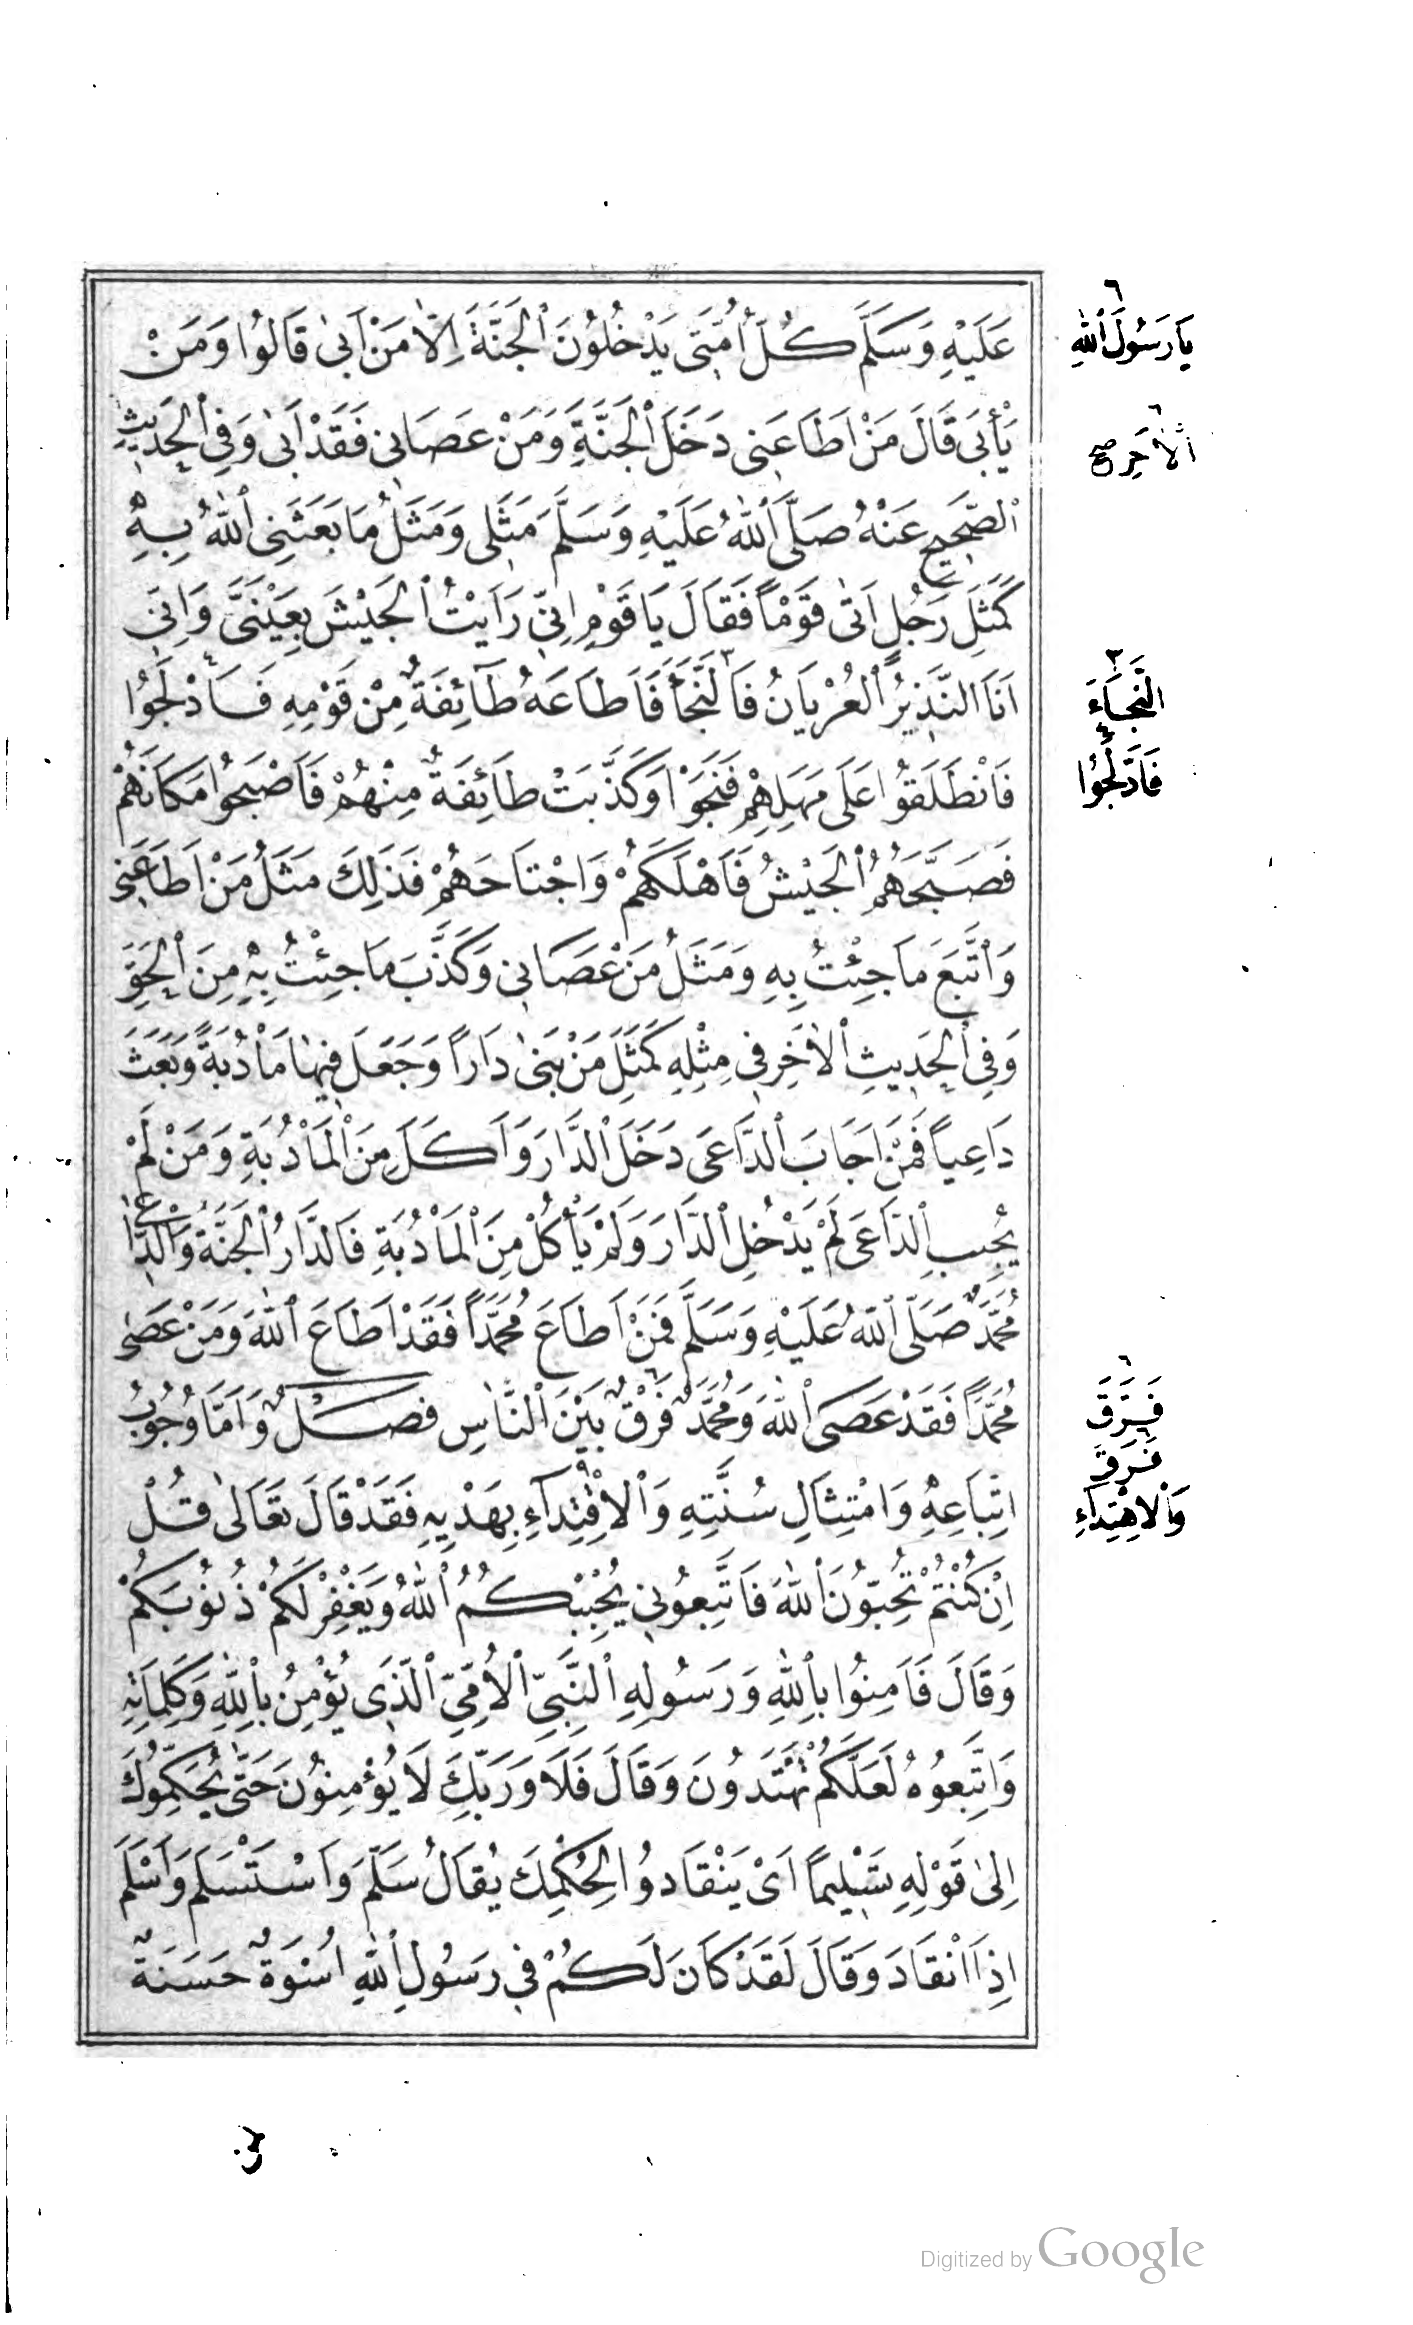 عَلَيْهِ وَسَلَّمَ كُلُّ اُمَّتِى يَدْخُلُونَ الْجَنَّةَ اِلَّا مَنْ اَبىٰ قَالُوا وَمَنْ
يَأْبىَ قَالَ مَنْ اَطَاعَنِى دَخَلَ الْجَنَّةَ وَمَنْ عَصَانِى فَقَدْ اَبىٰ وَفِى الْحَدِيثِ
الصَّحِيحِ عَنْهُ صَلَّى اللّٰهُ عَلَيْهِ وَسَلَّمَ مَثَلِى وَمَثَلُ مَا بَعَثَنِى اللّٰهُ بِهِ
كَمَثَلِ رَجُلٍ اَتىٰ قَوْمًا فَقَالَ يَا قَوْمِ اِنِّى رَاَيْتُ الْجَيْشَ بِعَيْنَىَّ وَاِنِّى
اَنَا النَّذِيرُ الْعُرْيَانُ فَالنَّجَأَ فَاَطَاعَهُ طَآئِفَةٌ مِنْ قَوْمِهِ فَاَدْلَجُوا
فَانْطَلَقُوا عَلَى مَهَلِهِمْ فَنَجَوْا وَكَذَّبَتْ طَائِفَةٌ مِنْهُمْ فَاَصْبَحُوا مَكَانَهُمْ
فَصَبَّحَهُمُ الْجَيْشُ فَاَهْلَكَهُمْ وَاجْتَاحَهُمْ فَذَلِكَ مَثَلُ مَنْ اَطَاعَنِى
وَاتَّبَعَ مَا جِئْتُ بِهِ وَمَثَلُ مَنْ عَصَانِى وَكَذَّبَ مَا جِئْتُ بِهِ مِنَ الْحَقِّ
وَفِى الْحَدِيثِ الْاٰخَرِ فِى مِثْلِهِ كَمَثَلِ مَنْ بَنىٰ دَارًا وَجَعَلَ فِيهَا مَأْدُبَةً وَبَعَثَ
دَاعِيًا فَمَنْ اَجَابَ الدَّاعَى دَخَلَ الدَّارَ وَاَكَلَ مِنَ الْمَأْدُبَةِ وَمَنْ لَمْ
يُجِبِ الدَّاعَى لَمْ يَدْخُلِ الدَّارَ وَلَمْ يَأْكُلْ مِنَ الْمَأْدُبَةِ فَالدَّارُ الْجَنَّةُ وَالدَّاعِى
مُحَمَّدٌ صَلَّى اللّٰهُ عَلَيْهِ وَسَلَّمَ فَمَنْ اَطَاعَ مُحَمَّدًا فَقَدْ اَطَاعَ اللّٰهَ وَمَنْ عَصىٰ
مُحَمَّدًا فَقَدْ عَصَى اللّٰهَ وَمُحَمَّدٌ فَرْقٌ بَيْنَ النَّاسِ فصْلٌ وَاَمَّا وُجُوبُ
اتِّبَاعِهِ وَامْتِثَالِ سُنَّتِهِ وَالْاِقْتِدَآءِ بِهَدْيِهِ فَقَدْ قَالَ تَعَالىٰ قُلْ
اِنْ كُنْتُمْ تُحِبُّونَ اللّٰهَ فَاتَّبِعُونِى يُحْبِبْكُمُ اللّٰهُ وَيَغْفِرْ لَكُمْ ذُنُوبَكُمْ
وَقَالَ فَاٰمِنُوا بِاللّٰهِ وَرَسُولِهِ النَّبِىِّ الْاُمِّىِّ الَّذِى يُؤْمِنُ بِاللّٰهِ وَكَلِمَاتِهِ
وَاتَّبِعُوهُ لَعَلَّكُمْ تَهْتَدُونَ وَقَالَ فَلَا وَرَبِّكَ لَا يُؤْمِنُونَ حَتَّى يُحَكِّمُوكَ
اِلىٰ قَوْلِهِ تَسْلِيمًا اَىْ يَنْقَادُوا لِحُكْمِكَ يُقَالُ سَلَّمَ وَاسْتَسْلَمَ وَاَسْلَمَ
اِذَا انْقَادَ وَقَالَ لَقَدْ كَانَ لَكُمْ فِى رَسُولِ اللّٰهِ اُسْوَةٌ حَسَنَةٌ
٦
يَارَسُولَ اللّٰهِ
٦
الْاٰخَرِ صح
٣
النَّجَاءَ
٤
فَادَّلَجُوا
٦
فَرَّقَ
فَرَقَ
وَالْاِهْتِدَاءِ
Digitized by Google